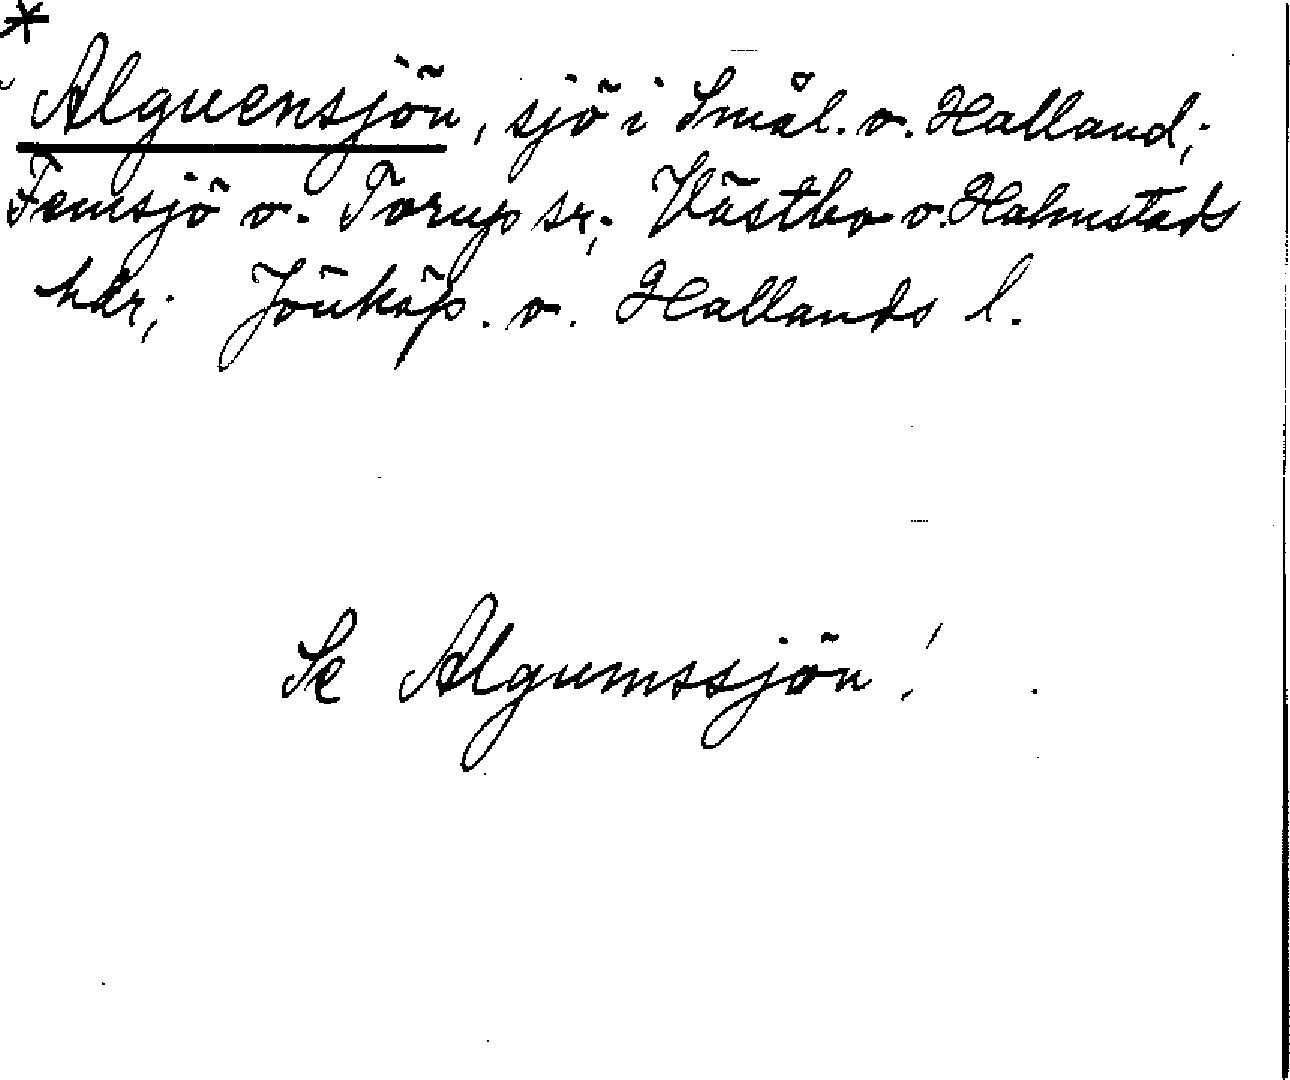 *
Alguensjön, sjö i Smål. o. Halland;
Femsjö o. Torup sr; Västbo o. Halmstads
hdr; Jönköp. o. Hallands l.
Se Algumssjön!